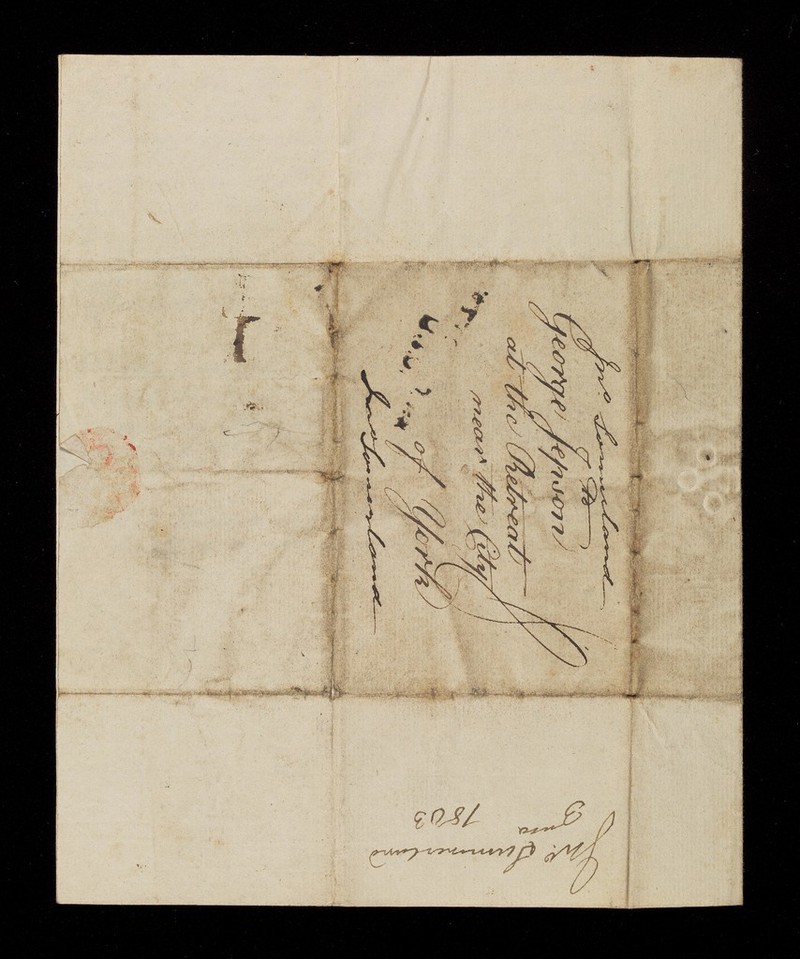 Jno. Somerland
To
George Jepson
at the Retreat
near the City
of York
Jno Somerland
Jno. Summerland
1803